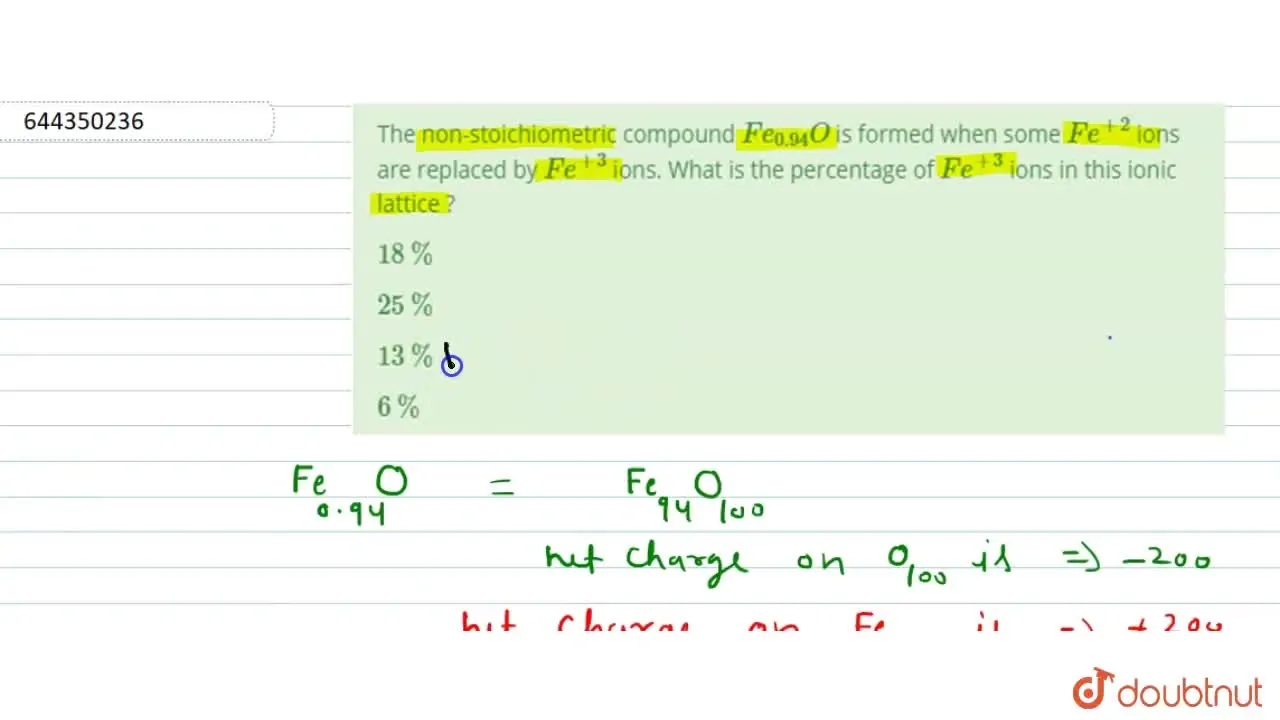 644350236
The non-stoichiometric compound Fe₀.₉₄O is formed when some Fe⁺² ions
are replaced by Fe⁺³ ions. What is the percentage of Fe⁺³ ions in this ionic
lattice ?
18 %
25 %
13 %
6 %
Fe₀.₉₄O = Fe₉₄O₁₀₀
net charge on O₁₀₀ is ⇒ -200
net charge on Fe is ⇒ +200
doubtnut